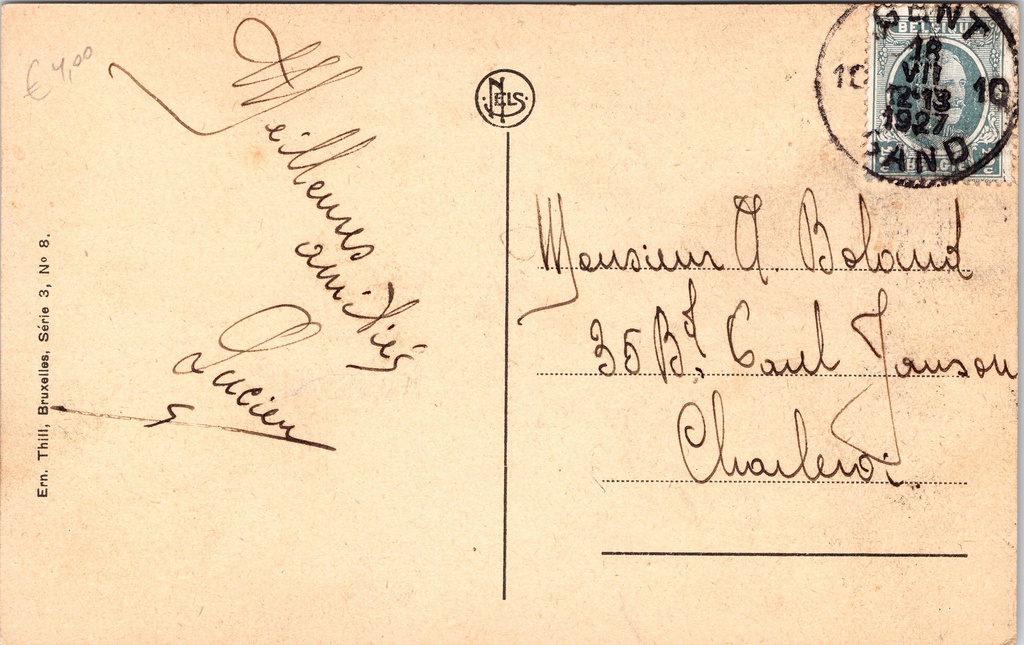 € 4,00
Meilleures
amitiés
Lucien
Ern. Thill, Bruxelles, Série 3, Nº 8.
NELS
GENT
BELGIQUE
10 18 10
VII
12-13
1927
GAND
BELGIË
Monsieur A. Boland
35 Bd. Paul Janson
Charleroi